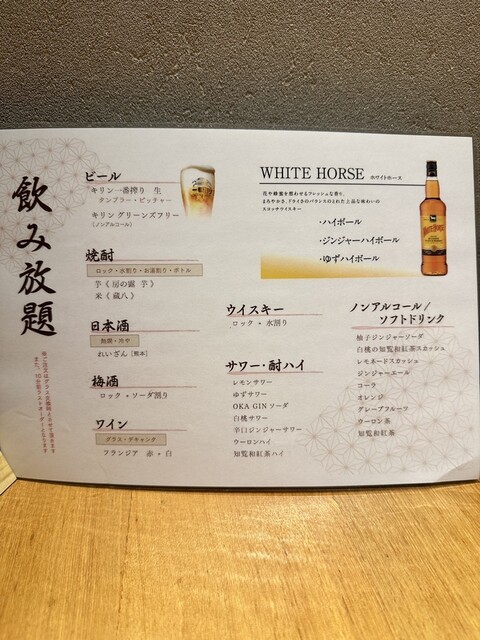 飲み放題
※ご注文はグラス交換制とさせて頂きます
また、30分前ラストオーダーとなります
ビール
キリン一番搾り 生
タンブラー・ピッチャー
キリン グリーンズフリー
(ノンアルコール)
焼酎
ロック・水割り・お湯割り・ボトル
芋《房の露 芋》
米《蔵八》
日本酒
熱燗・冷や
れいざん[熊本]
梅酒
ロック・ソーダ割り
ワイン
グラス・デキャンタ
フランジア 赤・白
WHITE HORSE ホワイトホース
花や蜂蜜を想わせるフレッシュな香り、
まろやかさ、ドライさのバランスのとれた上品な味わいの
スコッチウイスキー
・ハイボール
・ジンジャーハイボール
・ゆずハイボール
ウイスキー
ロック・水割り
サワー・酎ハイ
レモンサワー
ゆずサワー
OKA GINソーダ
白桃サワー
辛口ジンジャーサワー
ウーロンハイ
知覧和紅茶ハイ
ノンアルコール/
ソフトドリンク
柚子ジンジャーソーダ
白桃の知覧和紅茶スカッシュ
レモネードスカッシュ
ジンジャーエール
コーラ
オレンジ
グレープフルーツ
ウーロン茶
知覧和紅茶